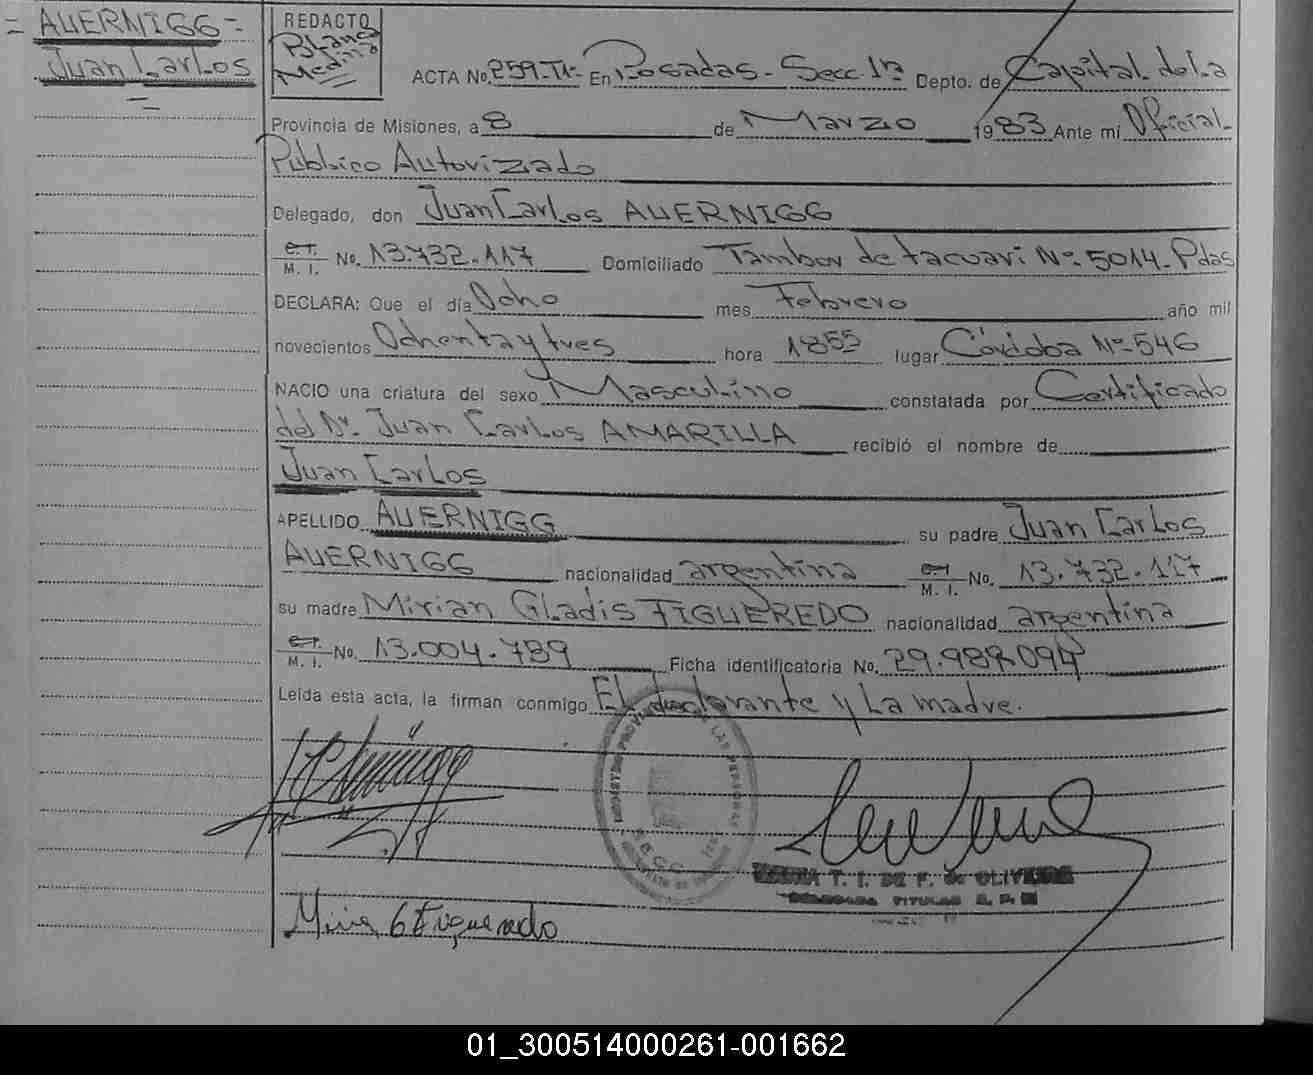 = AUERNIGG =
Juan Carlos
REDACTO
Blanca
Medina
ACTA No. 259-TI- En Posadas- Secc. 1ra Depto. de Capital de La
Provincia de Misiones, a 8 de Marzo 1983 Ante mí Oficial
Público Autorizado
Delegado, don Juan Carlos AUERNIGG
C.I.
M. I. No. 13.732.117 Domiciliado Tambor de tacuari Nº 5014-Pdas
DECLARA: Que el día Ocho mes Febrero año mil
novecientos Ochenta y tres hora 1855 lugar Córdoba Nº-546
NACIO una criatura del sexo Masculino constatada por Certificado
del Dr. Juan Carlos AMARILLA recibió el nombre de
Juan Carlos
APELLIDO AUERNIGG su padre Juan Carlos
AUERNIGG nacionalidad argentina C.I.
M. I. No. 13.732.117
su madre Mirian Gladis FIGUEREDO nacionalidad argentina
C.I.
M. I. No. 13.004.789 Ficha identificatoria No. 29.989.094
Leída esta acta, la firman conmigo El declarante y La madre.
T. I. DE F. de OLIVEIRA
DELEGADA TITULAR
Figueredo
01_300514000261-001662